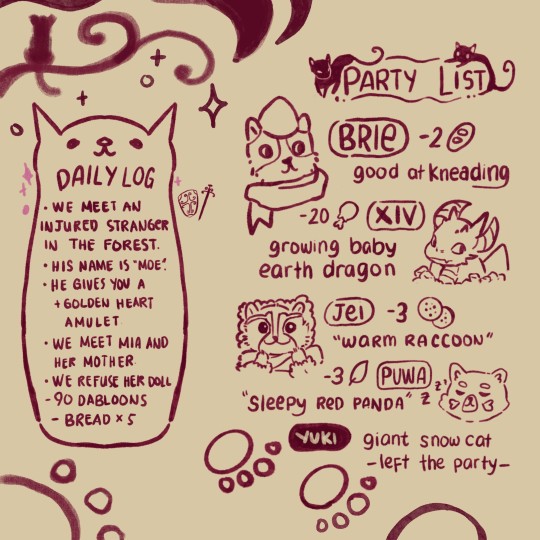 PARTY LIST
DAILY LOG
• WE MEET AN
INJURED STRANGER
IN THE FOREST.
• HIS NAME IS "MOE".
• HE GIVES YOU A
+GOLDEN HEART
AMULET
• WE MEET MIA AND
HER MOTHER.
• WE REFUSE HER DOLL
-90 DABLOONS
- BREAD x 5
BRIE -2
good at kneading
-20 XIV
growing baby
earth dragon
JEI -3
"WARM RACCOON"
-3 PUWA
"Sleepy RED PANDA"
z z
YUKI giant snow cat
-left the party-